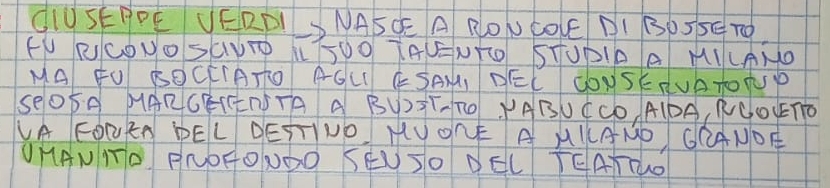 GIUSEPPE VERDI → NASCE A RONCOLE DI BUSSETO
FU RICONOSCIUTO IL SUO TALENTO STUDIA A MILANO
MA FU BOCCIATO AGLI ESAMI DEL CONSERVATORIO
SPOSA MARGHERITA A BUSSETO. NABUCCO, AIDA, RIGOLETTO
LA FORZA DEL DESTINO. MUORE A MILANO, GRANDE
UMANITÀ. PROFONDO SENSO DEL TEATRO